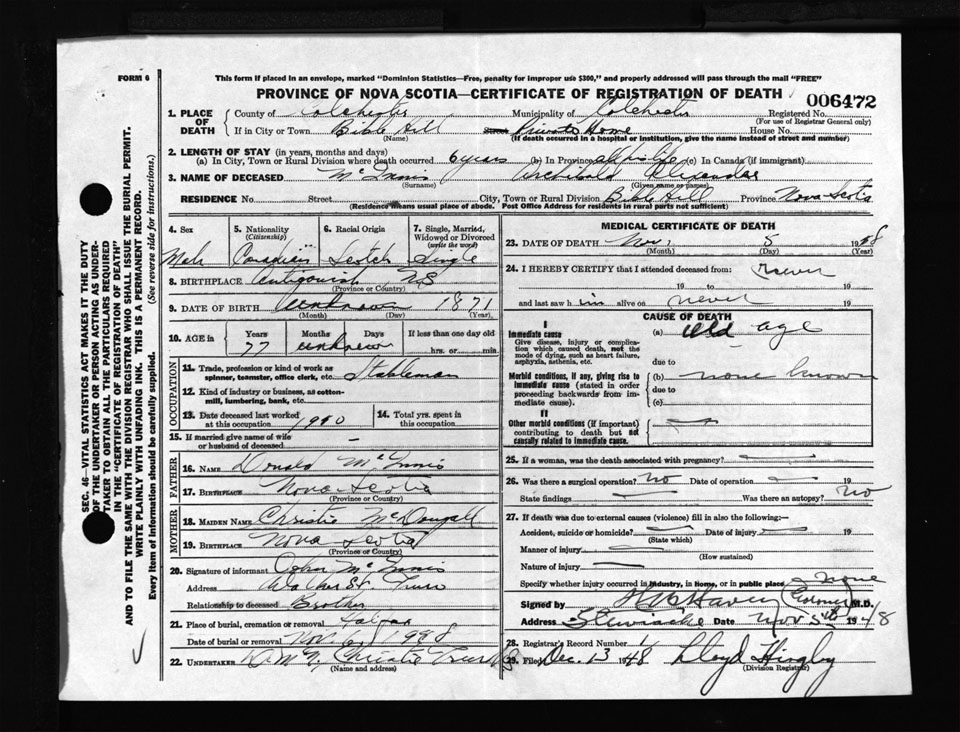 FORM 6
This form if placed in an envelope, marked "Dominion Statistics—Free, penalty for improper use $300," and properly addressed will pass through the mail "FREE"
PROVINCE OF NOVA SCOTIA—CERTIFICATE OF REGISTRATION OF DEATH
006472
1. PLACE OF DEATH
County of Colchester Municipality of Colchester Registered No.
(For use of Registrar General only)
If in City or Town Bible Hill Private Home House No.
(Name) (If death occurred in a hospital or institution, give the name instead of street and number)
2. LENGTH OF STAY (in years, months and days)
(a) In City, Town or Rural Division where death occurred 6 years (b) In Province all his life (c) In Canada (if immigrant)
3. NAME OF DECEASED McInnis Archibald Alexander
(Surname) (Given name or names)
RESIDENCE No. Street City, Town or Rural Division Bible Hill Province Nova Scotia
(Residence means usual place of abode. Post Office Address for residents in rural parts not sufficient)
4. Sex
Male
5. Nationality
(Citizenship)
Canadian
6. Racial Origin
Scotch
7. Single, Married, Widowed or Divorced
(write the word)
Single
8. BIRTHPLACE Antigonish N S
(Province or Country)
9. DATE OF BIRTH unknown 1871
(Month) (Day) (Year)
10. AGE in Years Months Days If less than one day old
77 unknown hrs. or min.
OCCUPATION
11. Trade, profession or kind of work as spinner, teamster, office clerk, etc. Stableman
12. Kind of industry or business, as cotton-mill, lumbering, bank, etc.
13. Date deceased last worked at this occupation 1940
14. Total yrs. spent in this occupation
15. If married give name of wife or husband of deceased —
FATHER
16. NAME Donald McInnis
17. BIRTHPLACE Nova Scotia
(Province or Country)
MOTHER
18. MAIDEN NAME Christie McDougall
19. BIRTHPLACE Nova Scotia
(Province or Country)
20. Signature of informant John McInnis
Address Walker St. Truro
Relationship to deceased Brother
21. Place of burial, cremation or removal Halifax
Date of burial or removal Nov. 6 1948
22. UNDERTAKER Christie Truro N.S
(Name and address)
MEDICAL CERTIFICATE OF DEATH
23. DATE OF DEATH Nov. 5 1948
(Month) (Day) (Year)
24. I HEREBY CERTIFY that I attended deceased from: never
19 to 19
and last saw him alive on never 19
CAUSE OF DEATH
I
Immediate cause
Give disease, injury or complication which caused death, not the mode of dying, such as heart failure, asphyxia, asthenia, etc.
(a) old age
due to
Morbid conditions, if any, giving rise to immediate cause (stated in order proceeding backwards from immediate cause).
(b) none known
due to
(c)
II
Other morbid conditions (if important) contributing to death but not causally related to immediate cause.
25. If a woman, was the death associated with pregnancy?
26. Was there a surgical operation? No Date of operation 19
State findings Was there an autopsy? no
27. If death was due to external causes (violence) fill in also the following:—
Accident, suicide or homicide? Date of injury 19
(State which)
Manner of injury
(How sustained)
Nature of injury
Specify whether injury occurred in industry, in home, or in public place none
Signed by (Coroner) M.D.
Address Stewiacke Date Nov 5th 1948
28. Registrar's Record Number
29. Filed Dec. 13 1948 Lloyd
(Division Registrar)
SEC. 46—VITAL STATISTICS ACT MAKES IT THE DUTY OF THE UNDERTAKER OR PERSON ACTING AS UNDERTAKER TO OBTAIN ALL THE PARTICULARS REQUIRED IN THE "CERTIFICATE OF REGISTRATION OF DEATH" AND TO FILE THE SAME WITH THE DIVISION REGISTRAR WHO SHALL ISSUE THE BURIAL PERMIT.
WRITE PLAINLY WITH UNFADING INK. THIS IS A PERMANENT RECORD.
Every item of information should be carefully supplied. (See reverse side for instructions.)